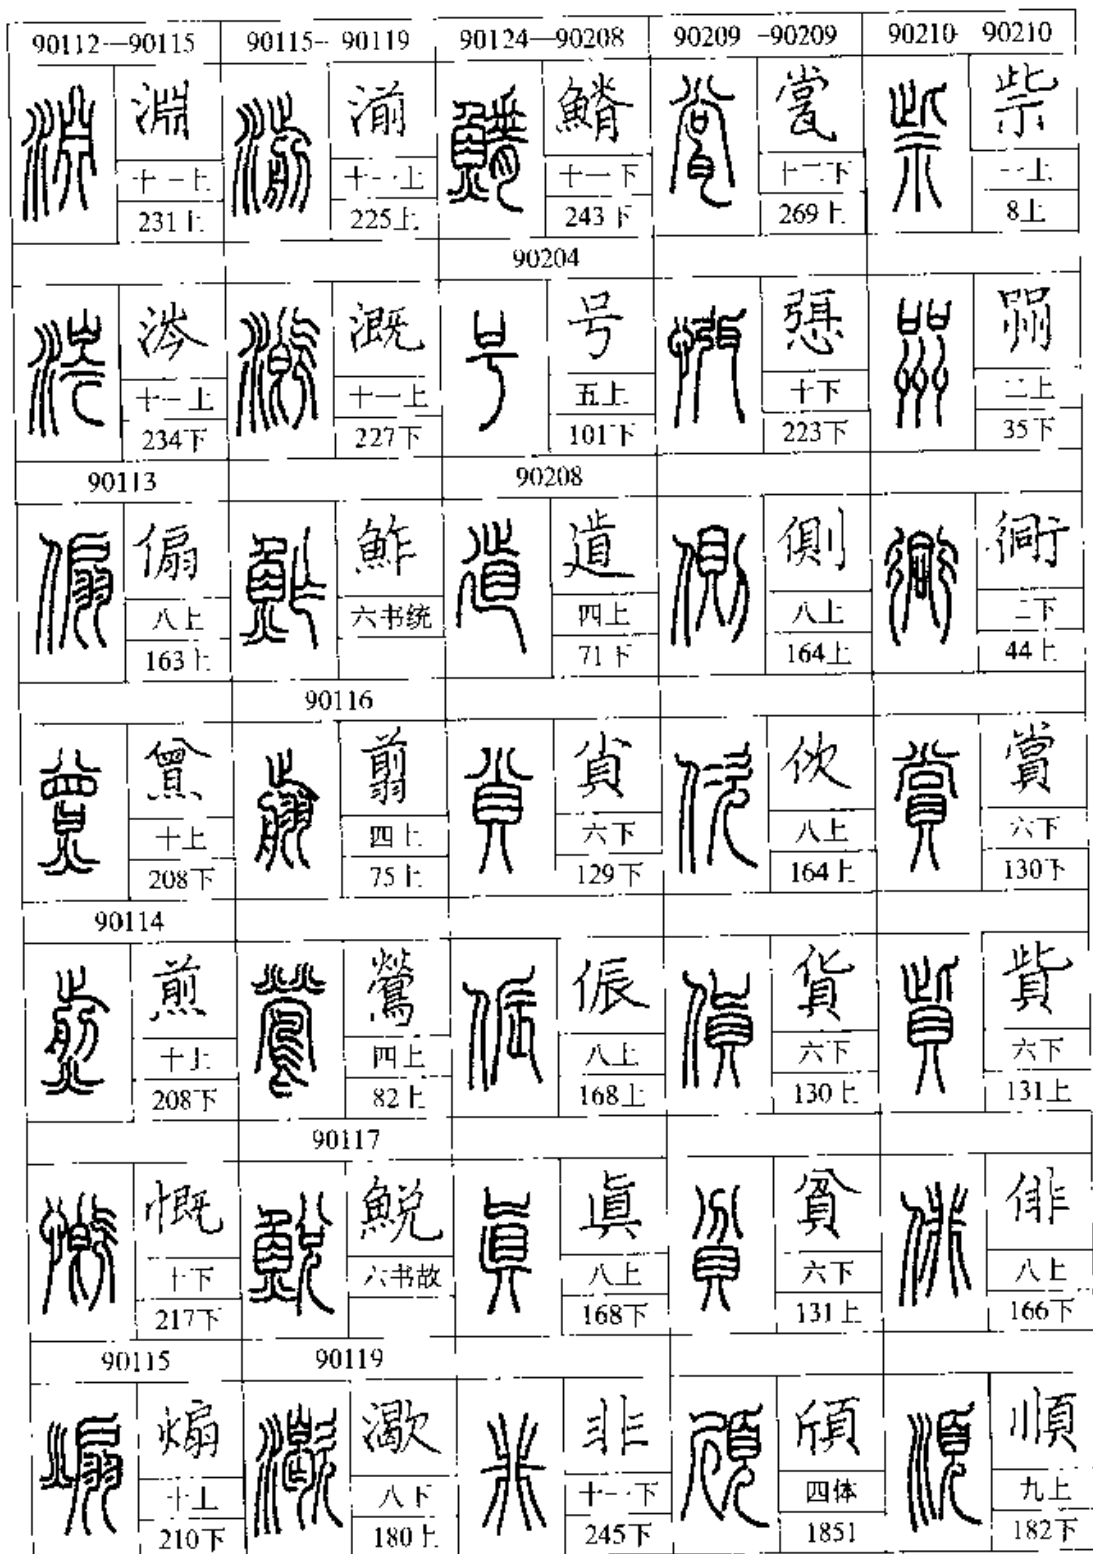 90112—90115
淵
十一上
231上
涔
十一上
234下
90113
傓
八上
163上
十上
208下
90114
煎
十上
208下
慨
十下
217下
90115
煽
十上
210下
90115- 90119
湔
十一上
225上
溉
十一上
227下
鮓
六书统
90116
翦
四上
75上
鶯
四上
82上
90117
鮵
六书故
90119
㵣
八下
180上
90124—90208
十一下
243下
90204
号
五上
101下
90208
四上
71下
六下
129下
侲
八上
168上
眞
八上
168下
非
十一下
245下
90209 -90209
瓽
十二下
269上
十下
223下
側
八上
164上
佽
八上
164上
貨
六下
130上
貧
六下
131上
頎
四体
1851
90210 90210
祡
一上
8上
二上
35下
衕
二下
44上
賞
六下
130下
貲
六下
131上
俳
八上
166下
順
九上
182下